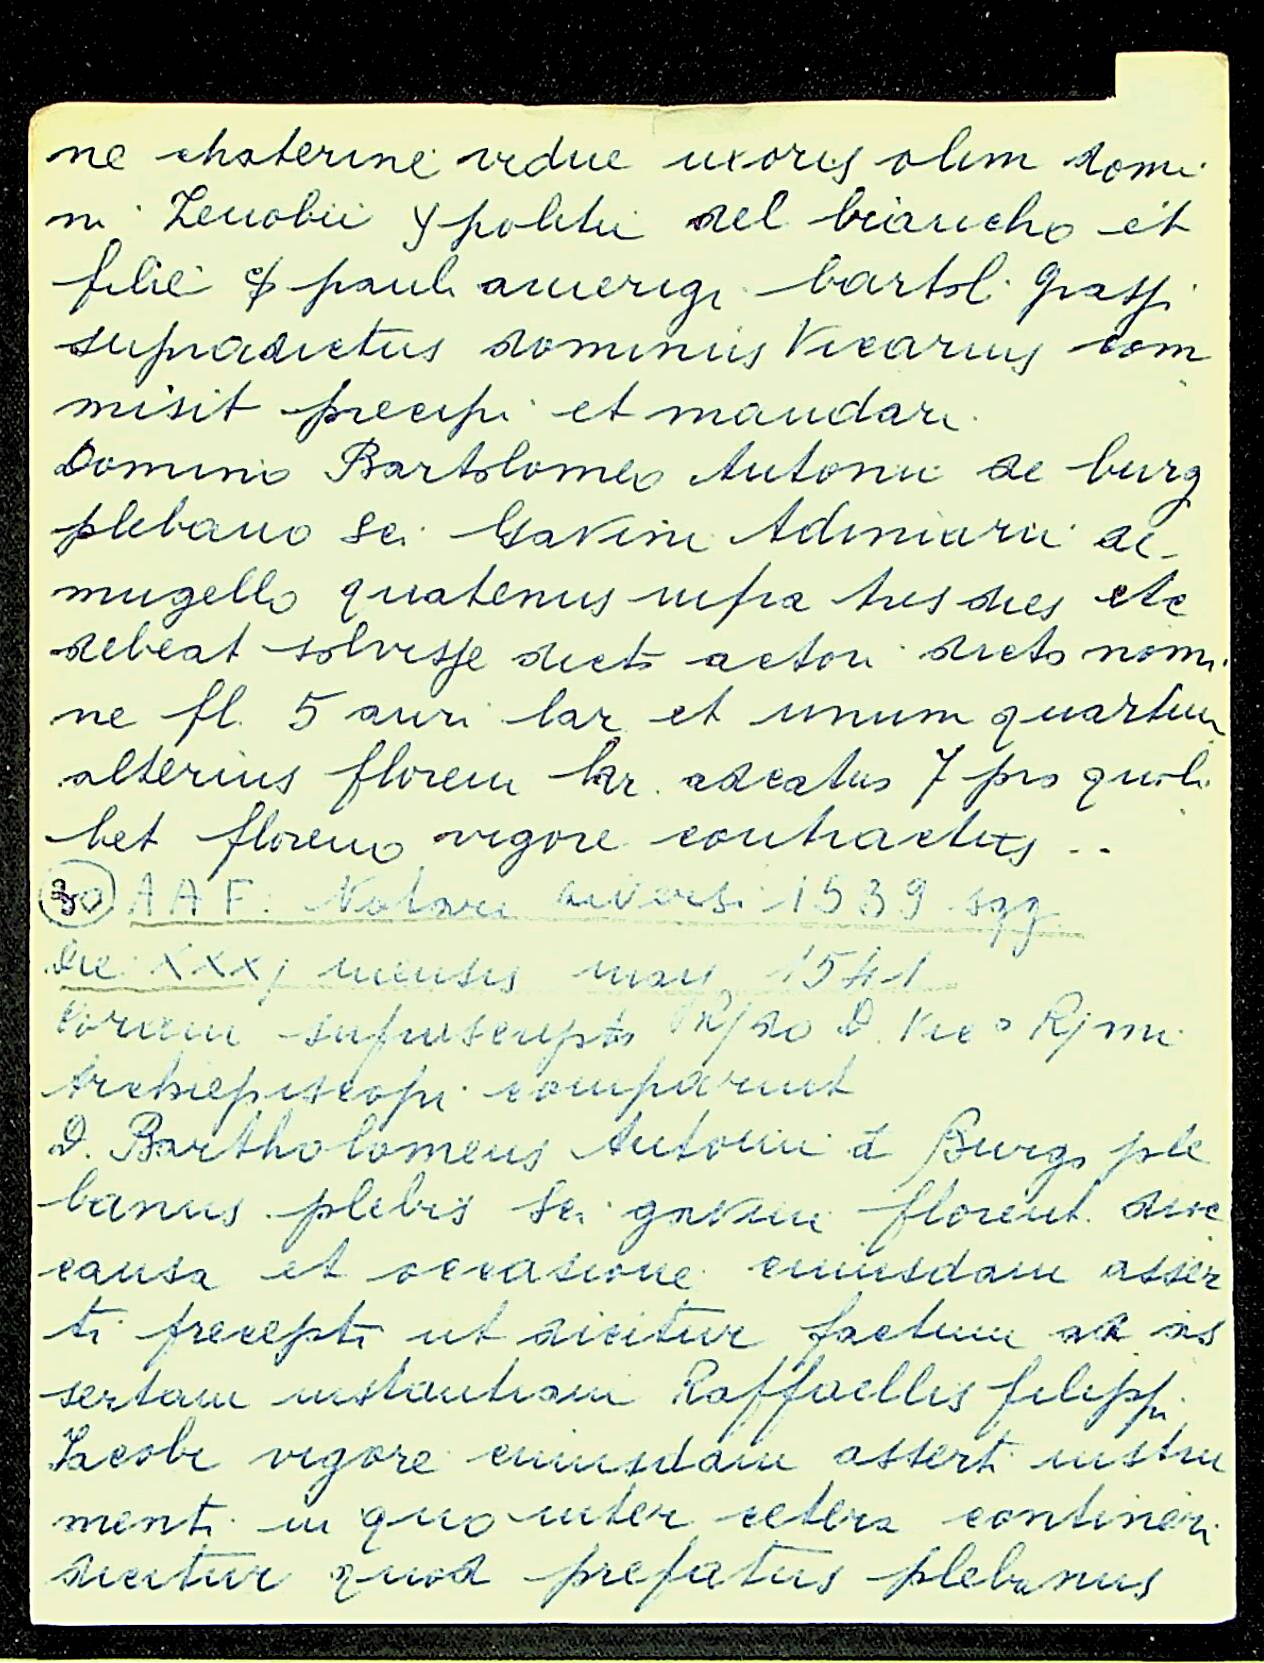 ne chaterine vidue uxoris olim domi
ni Zenobii ypoliti del biancho et
filie pauli amerigi bartol. Grassi
supradictus dominus Vicarius com
misit precipi et mandari.
Domino Bartolomeo Antonii de burg
plebano Sci Gavini Adimarii de
mugello quatenus infra tres dies etc
debeat solvisse dicto actori dicto nomi
ne fl. 5 auri lar et unum quartum
alterius floreni lar. ad 7 pro quoli
bet floreno vigore contractus ..
30 A A F: Notari diversi 1539 sgg
Die XXXj mensis may 1541
Coram suprascripto D. Vico Rjmi
Archiepiscopi comparuit
D. Bartholomeus Antonii d Burgo ple
banus plebis Sci gavini florent. dioc
causa et occasione cuiusdam asser
ti precepti ut dicitur factum ad as
sertam instantiam Raffaellis filippi
Jacobi vigore cuiusdam asserti instru
menti in quo inter cetera contineri
dicitur quod prefatus plebanus